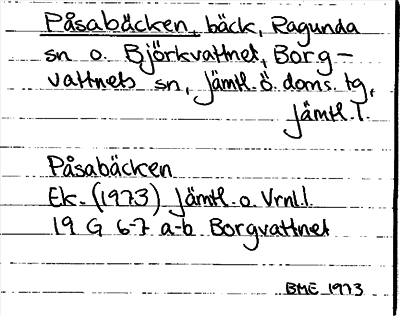 Påsabäcken, bäck, Ragunda
sn o. Björkvattnet, Borg-
vattnets sn, Jämtl. ö. doms. tg,
Jämtl. l.
Påsabäcken
Ek. (1973) Jämtl. o. Vrnl. l.
19 G 6-7 a-b Borgvattnet
BME 1973